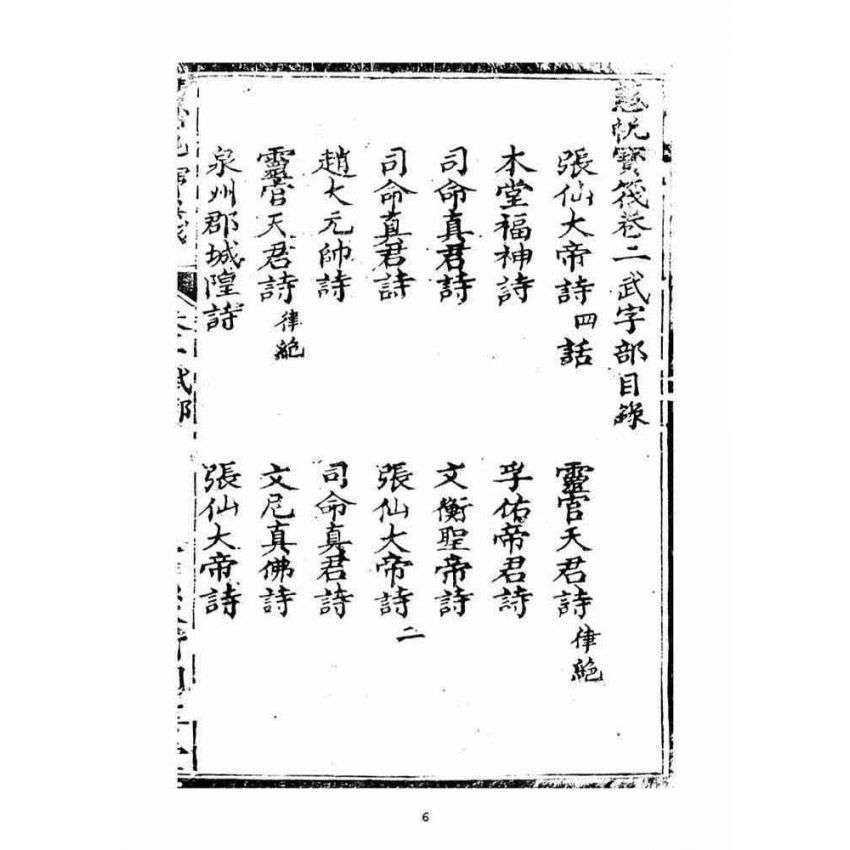 慈帆寶筏卷二武字部目錄
張仙大帝詩四話
靈官天君詩律絕
木堂福神詩
孚佑帝君詩
司命真君詩
文衡聖帝詩
司命真君詩
張仙大帝詩二
趙大元帥詩
司命真君詩
靈官天君詩律絕
文尼真佛詩
泉州郡城隍詩
張仙大帝詩
6